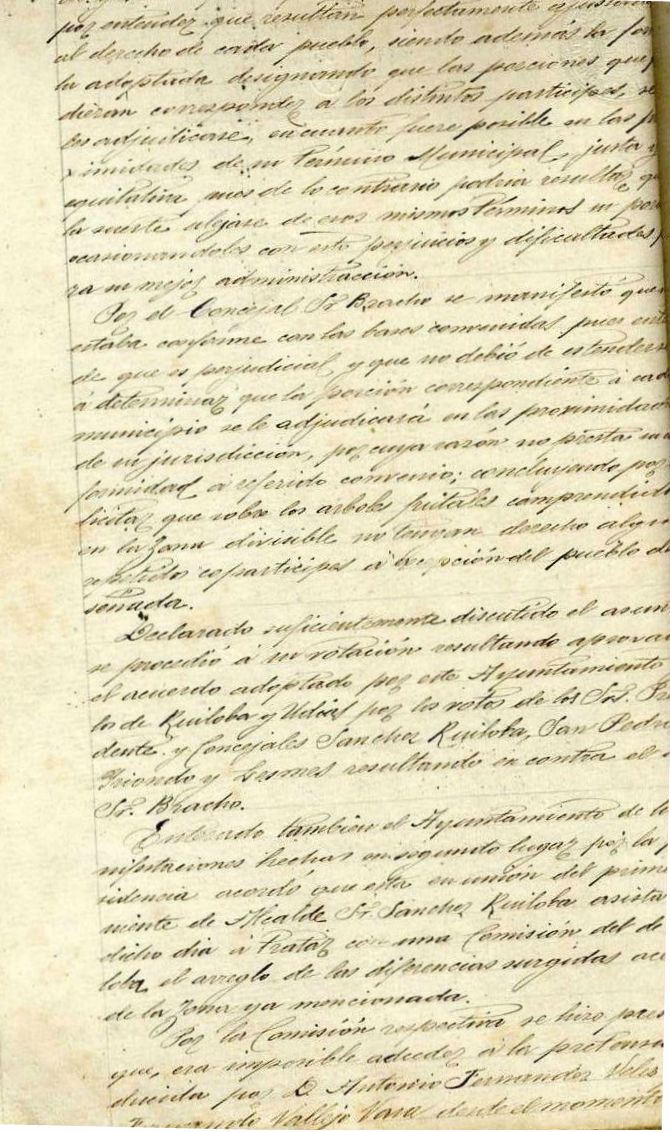 por entender que resultan perfectamente
al derecho de cada pueblo, siendo además la for
la adoptada designando que las porciones que p
dieran corresponder á los distintos partícipes, se
les adjudicase, en cuanto fuere posible en las pro
ximidades de su Término Municipal, justa y
equitativa, pues de lo contrario podria resultar que
la suerte alejase de esos mismos Términos su por
ocasionandoles con esto perjuicios y dificultades p
ra su mejor administracción.
Por el Concejal Sr. Bracho se manifestó que
estaba conforme con las bases convenidas pues enti
de que es perjudicial y que no debió de estenderse
á determinar que la porción correspondiente á cad
municipio se le adjudicará en las proximidades
de su jurisdicción, por cuya razón no presta su co
formidad á referido convenio; concluyendo por
licitar que sobre los árboles frutales comprendid
en la zona divisible no tengan derecho algu
repetidos copartícipes á excepción del pueblo de
señada.
Declarado suficientemente discutido el asun
se procedió á su votación resultando aprovad
el acuerdo adoptado por este Ayuntamiento
los de Ruiloba y Udías por los votos de los Sres. Pre
dente y Concejales Sanchez Ruiloba, San Pedro
Iriondo y Lesmes resultando en contra el
Sr. Bracho.
Enterado tambien el Ayuntamiento de la
nifestaciones hechas en segundo lugar por la p
sidencia acordó que esta en unión del prime
niente de Alcalde Sr. Sanchez Ruiloba asista
dicho dia á tratar con una Comisión del de
loba el arreglo de las diferencias surgidas ace
de la zona ya mencionada.
Por la Comisión respectiva se hizo pres
que, era imposible acceder á la pretensi
ducida por D. Antonio Fernandez Velez
Fernando Vallejo Vara desde el momento